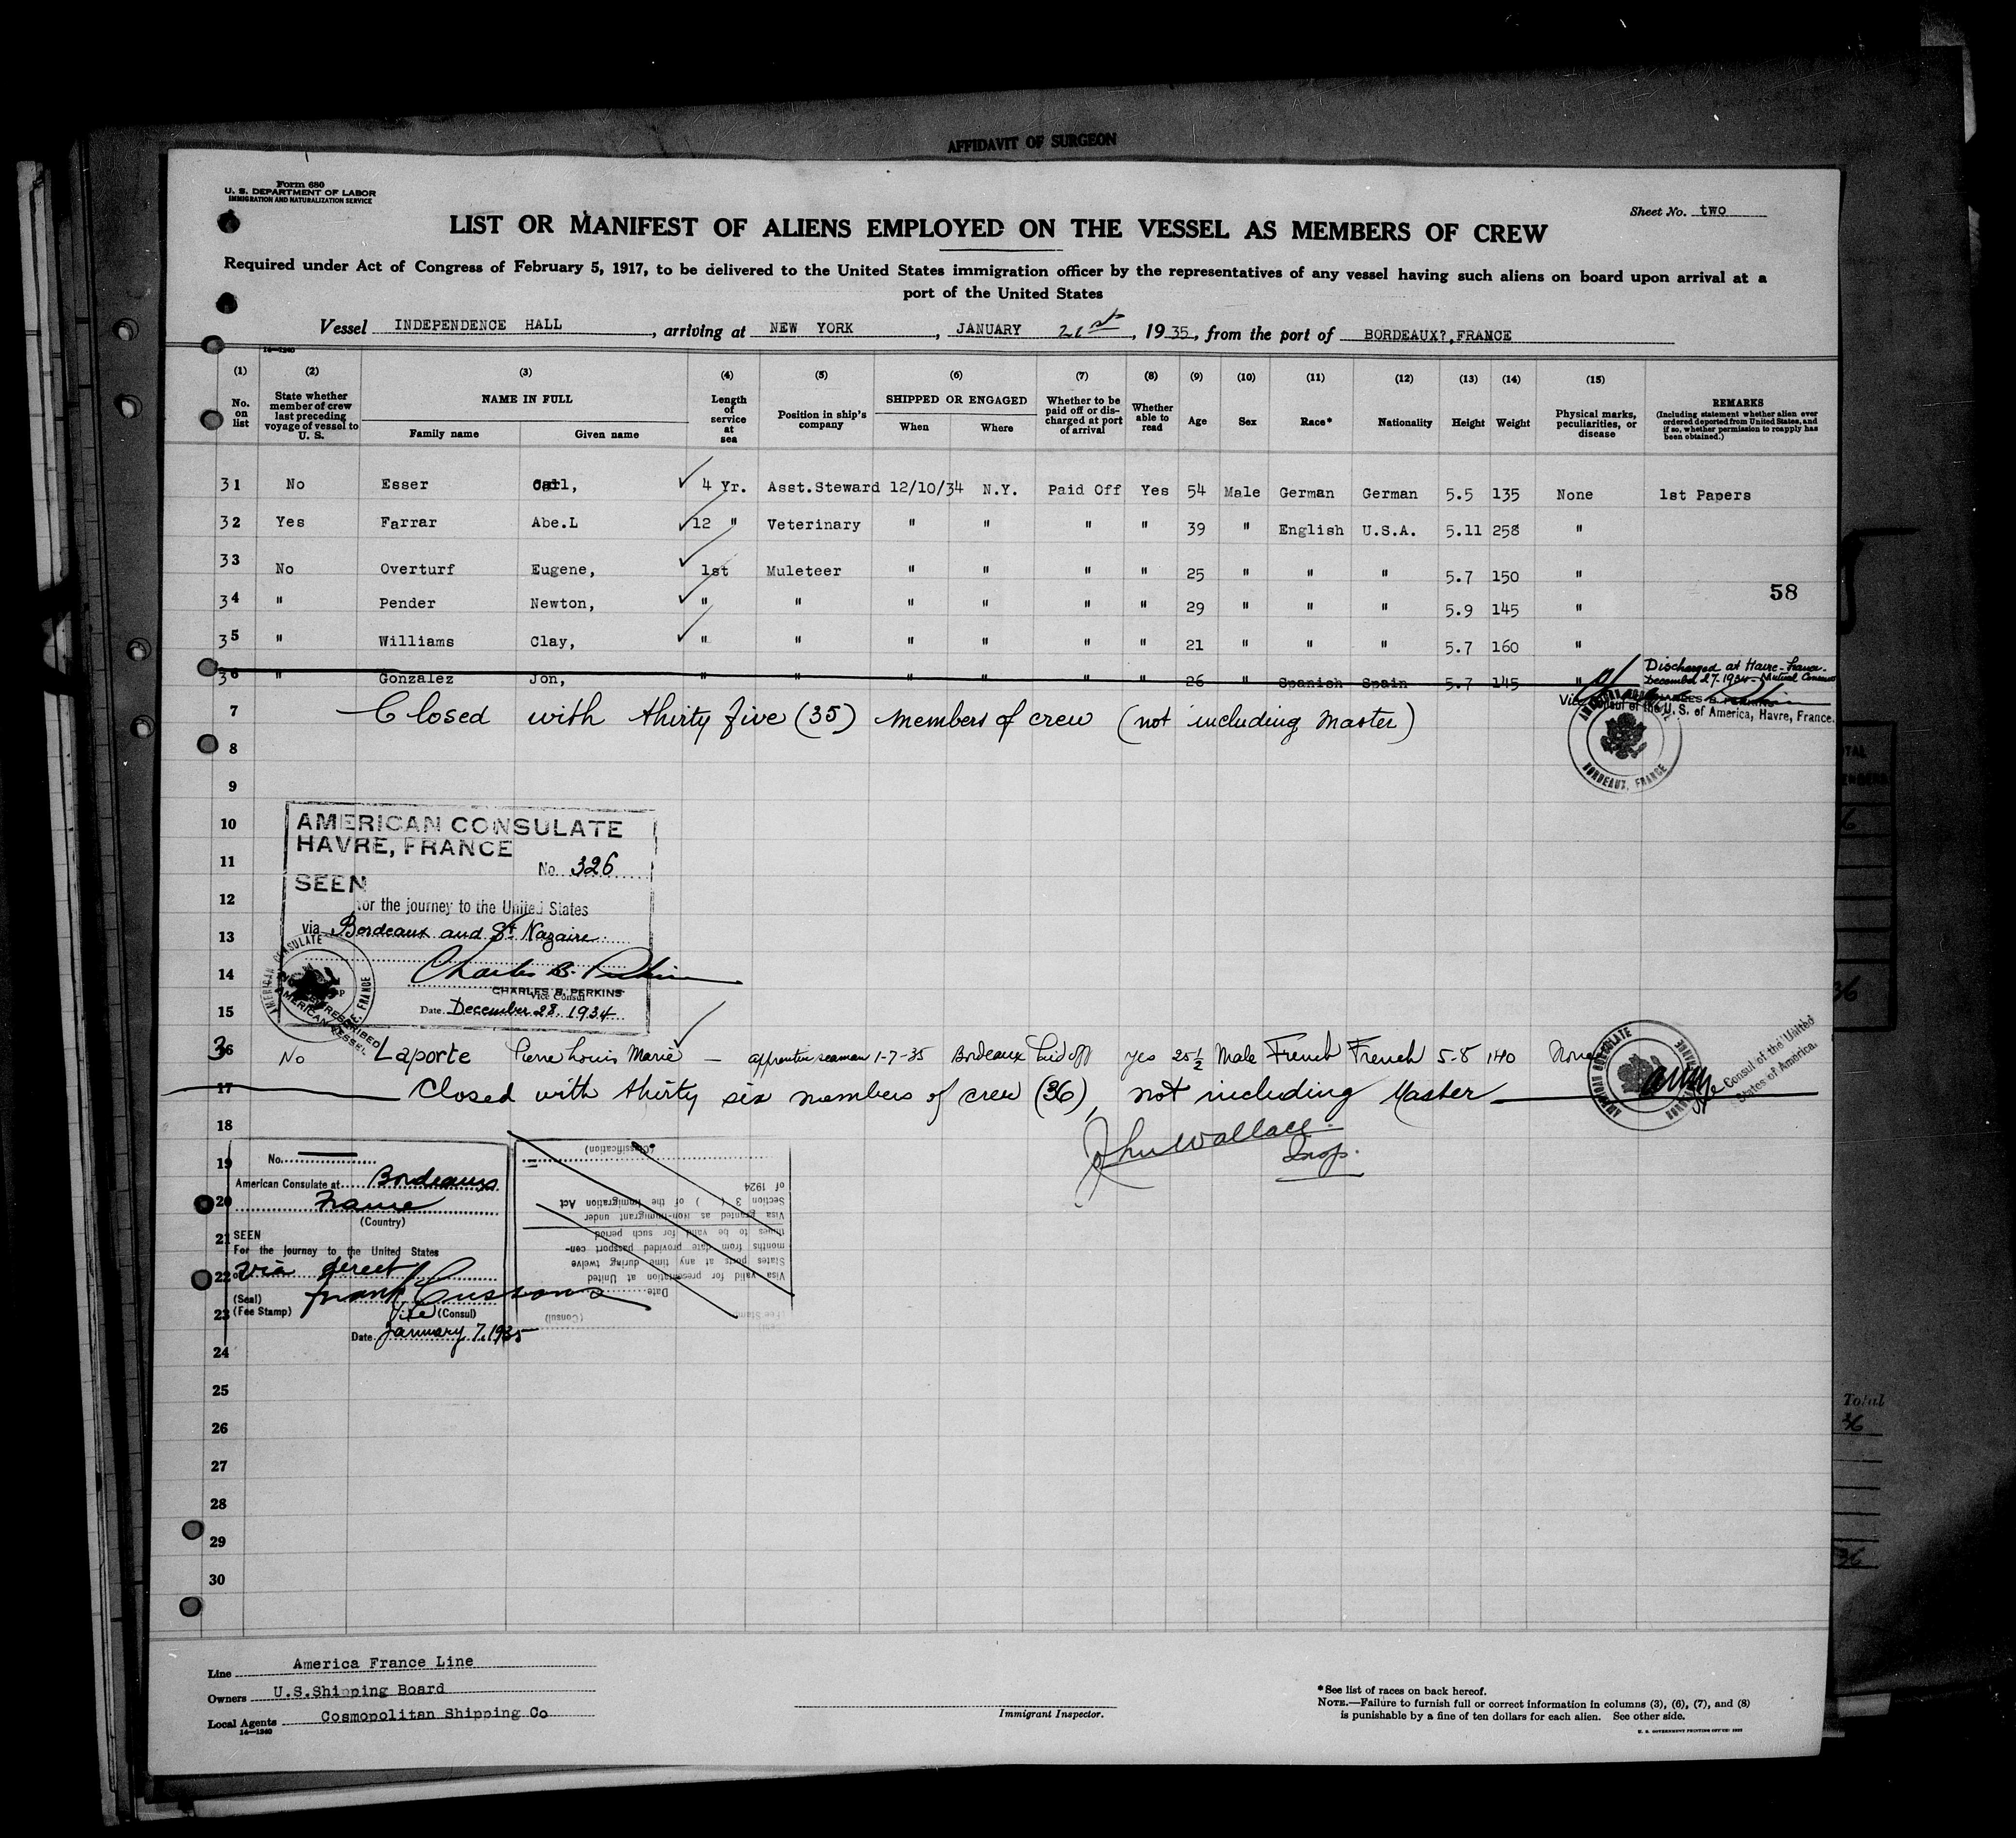 AFFIDAVIT OF SURGEON
Form 680
U. S. DEPARTMENT OF LABOR
IMMIGRATION AND NATURALIZATION SERVICE
Sheet No. two
LIST OR MANIFEST OF ALIENS EMPLOYED ON THE VESSEL AS MEMBERS OF CREW
Required under Act of Congress of February 5, 1917, to be delivered to the United States immigration officer by the representatives of any vessel having such aliens on board upon arrival at a
port of the United States
Vessel INDEPENDENCE HALL, arriving at NEW YORK, JANUARY 21st, 1935, from the port of BORDEAUX?,FRANCE
14—1240
(1) (2) (3) (4) (5) (6) (7) (8) (9) (10) (11) (12) (13) (14) (15)
No. on list
State whether member of crew last preceding voyage of vessel to U. S.
NAME IN FULL
Family name Given name
Length of service at sea
Position in ship's company
SHIPPED OR ENGAGED
When Where
Whether to be paid off or discharged at port of arrival
Whether able to read
Age Sex Race* Nationality Height Weight
Physical marks, peculiarities, or disease
REMARKS
(Including statement whether alien ever ordered deported from United States, and if so, whether permission to reapply has been obtained.)
31 No Esser Carl, 4 Yr. Asst.Steward 12/10/34 N.Y. Paid Off Yes 54 Male German German 5.5 135 None 1st Papers
32 Yes Farrar Abe.L 12 " Veterinary " " " " 39 " English U.S.A. 5.11 258 "
33 No Overturf Eugene, 1st Muleteer " " " " 25 " " " 5.7 150 "
58
34 " Pender Newton, " " " " " " 29 " " " 5.9 145 "
35 " Williams Clay, " " " " " " 21 " " " 5.7 160 "
36 " Gonzalez Jon, " " " " " " 26 " Spanish Spain 5.7 145 "
Discharged at Havre-France.
December 27-1934-Mutual Consent
Vice Consul of the U. S. of America, Havre, France.
7 Closed with thirty five (35) members of crew (not including Master)
BORDEAUX, FRANCE
8
9
10
AMERICAN CONSULATE
HAVRE, FRANCE
11
No. 326
SEEN
12
for the journey to the United States
13
via Bordeaux and St Nazaire
14
Charles B. Perkins
CHARLES B. PERKINS
Vice Consul
15
Date December 28. 1934
AMERICAN CONSULATE
36 No Laporte Pierre Louis Marie — apprentice seaman 1-7-35 Bordeaux Paid off yes 25½ Male French French 5-8 140 None
AMERICAN CONSULATE
Vice Consul of the United
States of America.
17 Closed with thirty six members of crew (36), not including Master
18
John Wallace
Insp.
19
No.
American Consulate at Bordeaux
20
France
(Country)
21
SEEN
For the journey to the United States
22
via direct
(Seal)
(Fee Stamp)
23
Vice (Consul)
Date January 7. 1935
(Classification)
of 1924
Section 3 ( ) of the Immigration Act
Visa granted as non-immigrant under
tinues to be valid for such period
months from date provided passport con-
States ports at any time during twelve
Visa valid for presentation at United
Date
(Consul)
24
25
26
27
28
29
30
Total
36
36
Line America France Line
Owners U.S.Shipping Board
Local Agents Cosmopolitan Shipping Co
14—1240
Immigrant Inspector.
*See list of races on back hereof.
NOTE.—Failure to furnish full or correct information in columns (3), (6), (7), and (8)
is punishable by a fine of ten dollars for each alien. See other side.